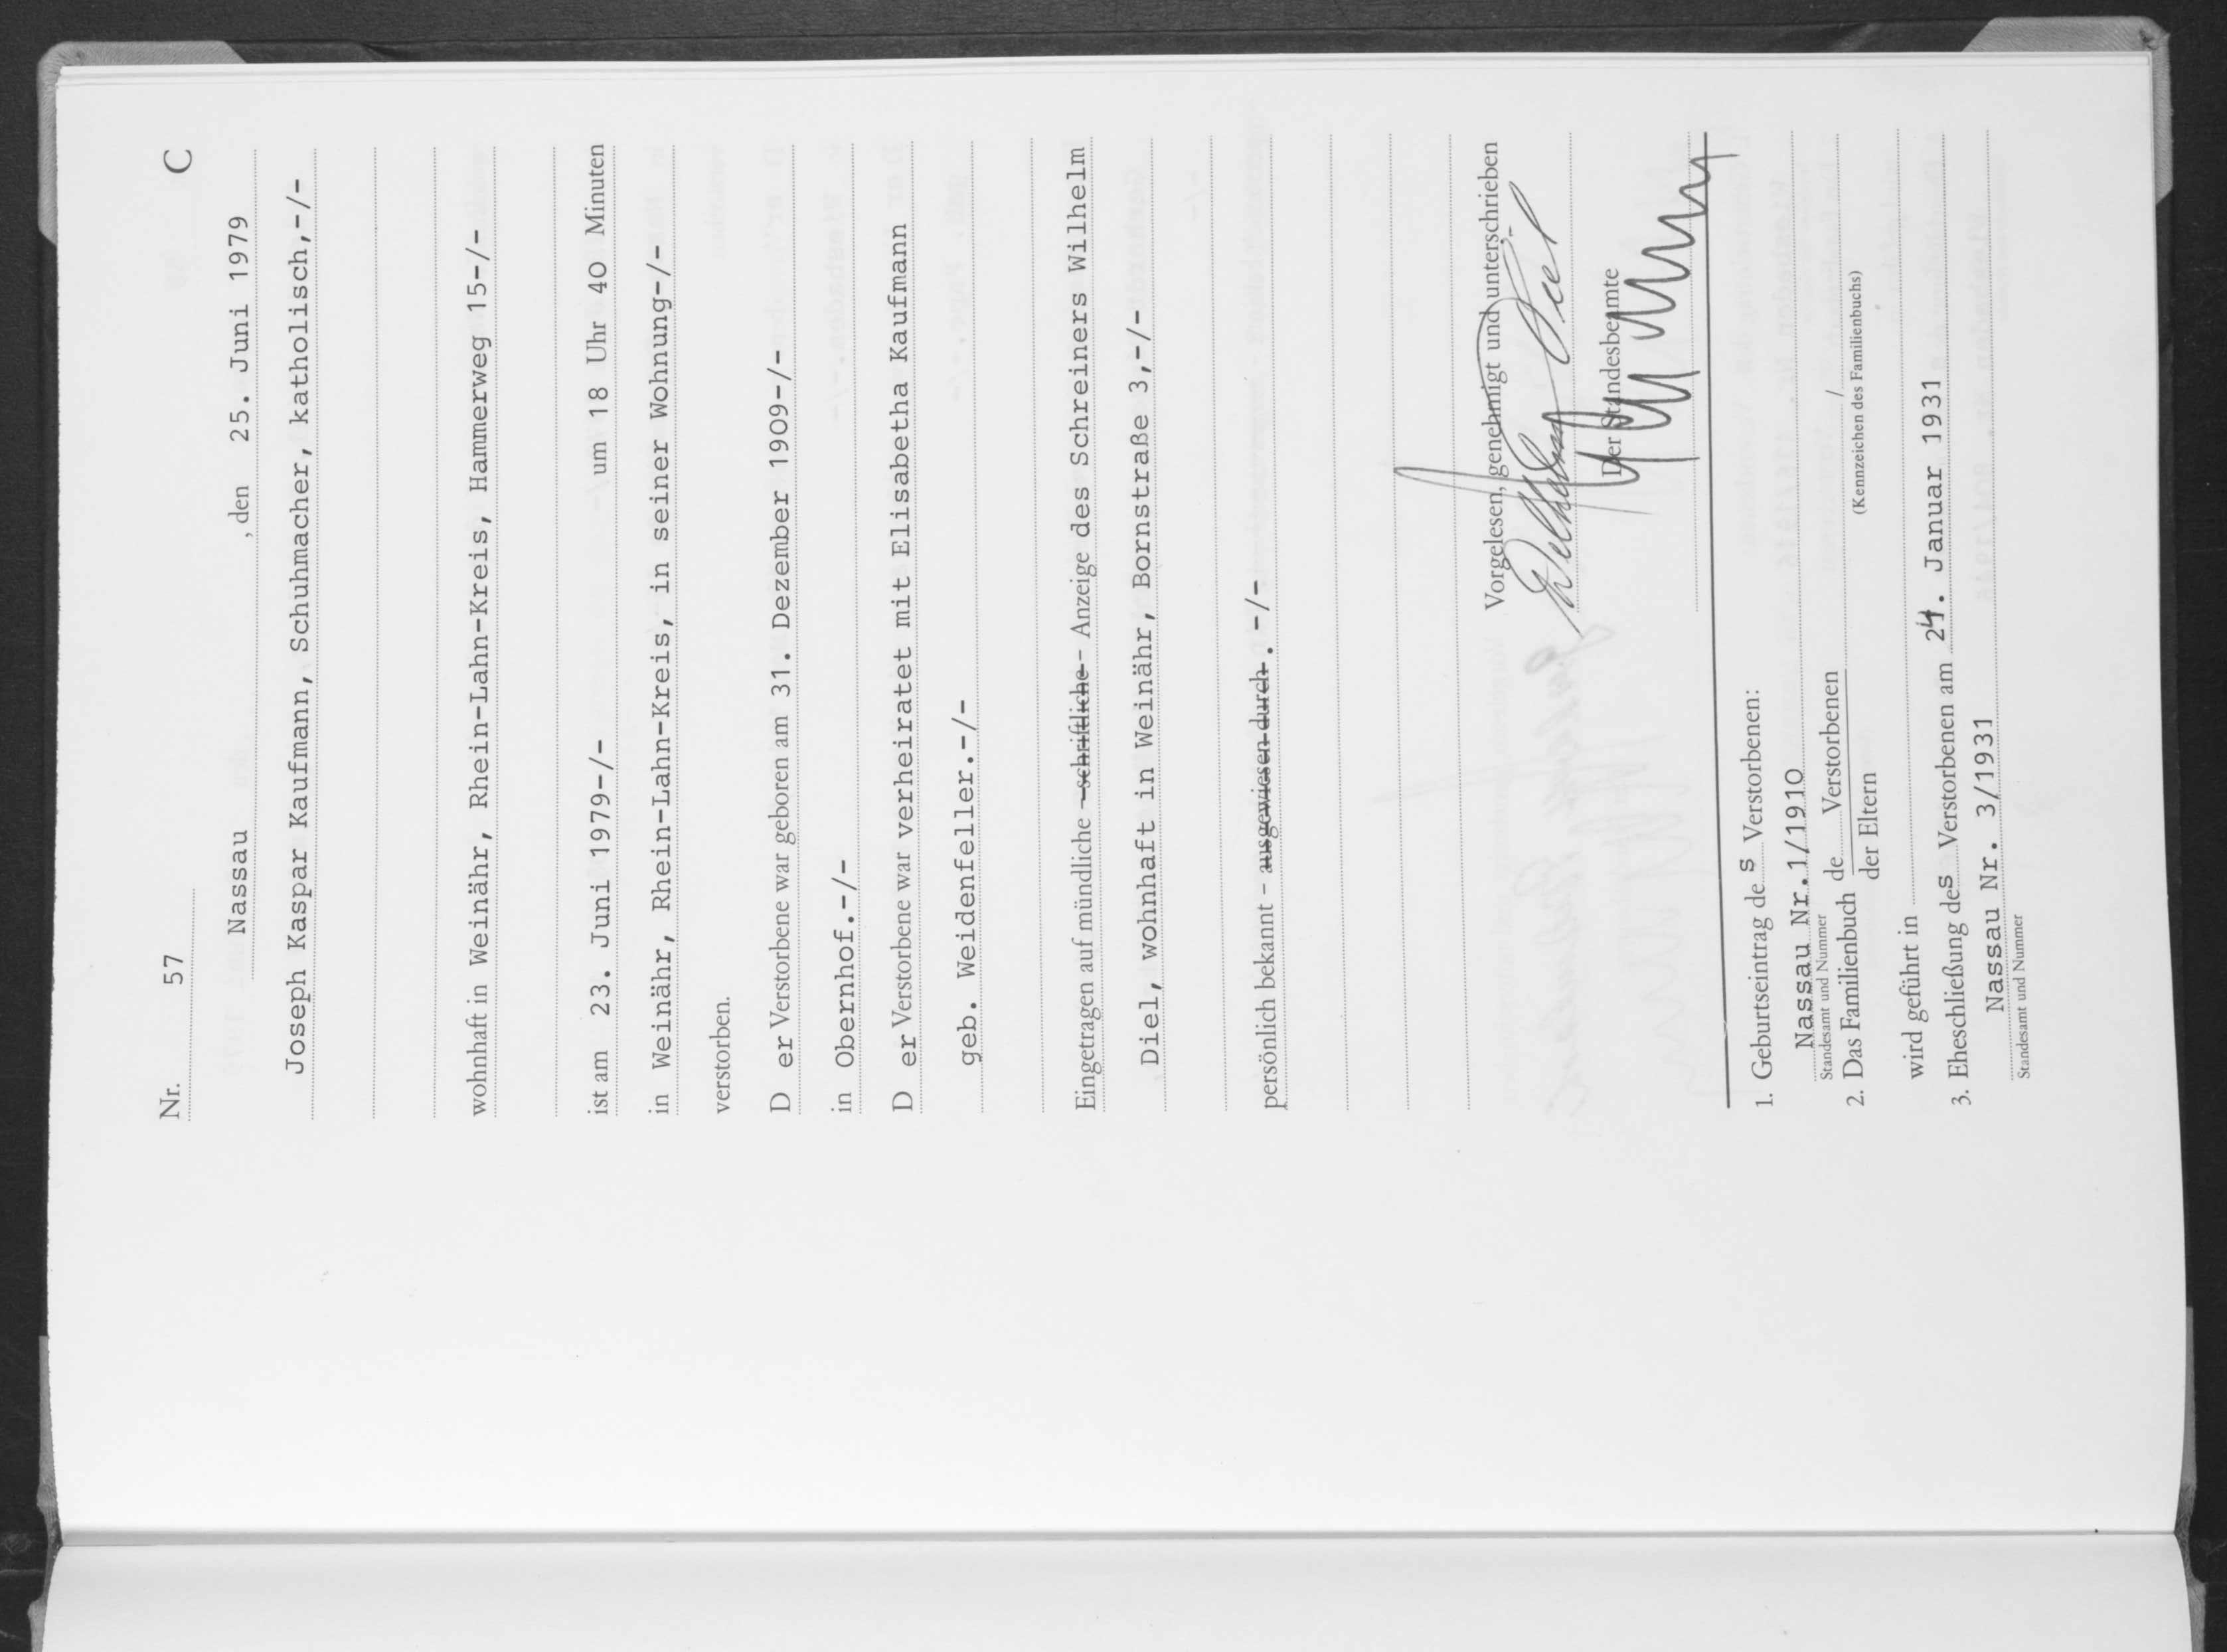 Nr. 57 C
Nassau , den 25. Juni 1979
Joseph Kaspar Kaufmann, Schuhmacher, katholisch,-/-
wohnhaft in Weinähr, Rhein-Lahn-Kreis, Hammerweg 15-/-
ist am 23. Juni 1979-/- um 18 Uhr 40 Minuten
in Weinähr, Rhein-Lahn-Kreis, in seiner Wohnung-/-
verstorben.
D er Verstorbene war geboren am 31. Dezember 1909-/-
in Obernhof.-/-
D er Verstorbene war verheiratet mit Elisabetha Kaufmann
geb. Weidenfeller.-/-
Eingetragen auf mündliche - schriftliche - Anzeige des Schreiners Wilhelm
Diel, wohnhaft in Weinähr, Bornstraße 3,-/-
persönlich bekannt - ausgewiesen durch . -/-
Vorgelesen, genehmigt und unterschrieben
Wilhelm Diel
Der Standesbeamte
1. Geburtseintrag des Verstorbenen:
Nassau Nr.1/1910
Standesamt und Nummer
2. Das Familienbuch de Verstorbenen /
der Eltern (Kennzeichen des Familienbuchs)
wird geführt in
3. Eheschließung des Verstorbenen am 24. Januar 1931
Nassau Nr. 3/1931
Standesamt und Nummer